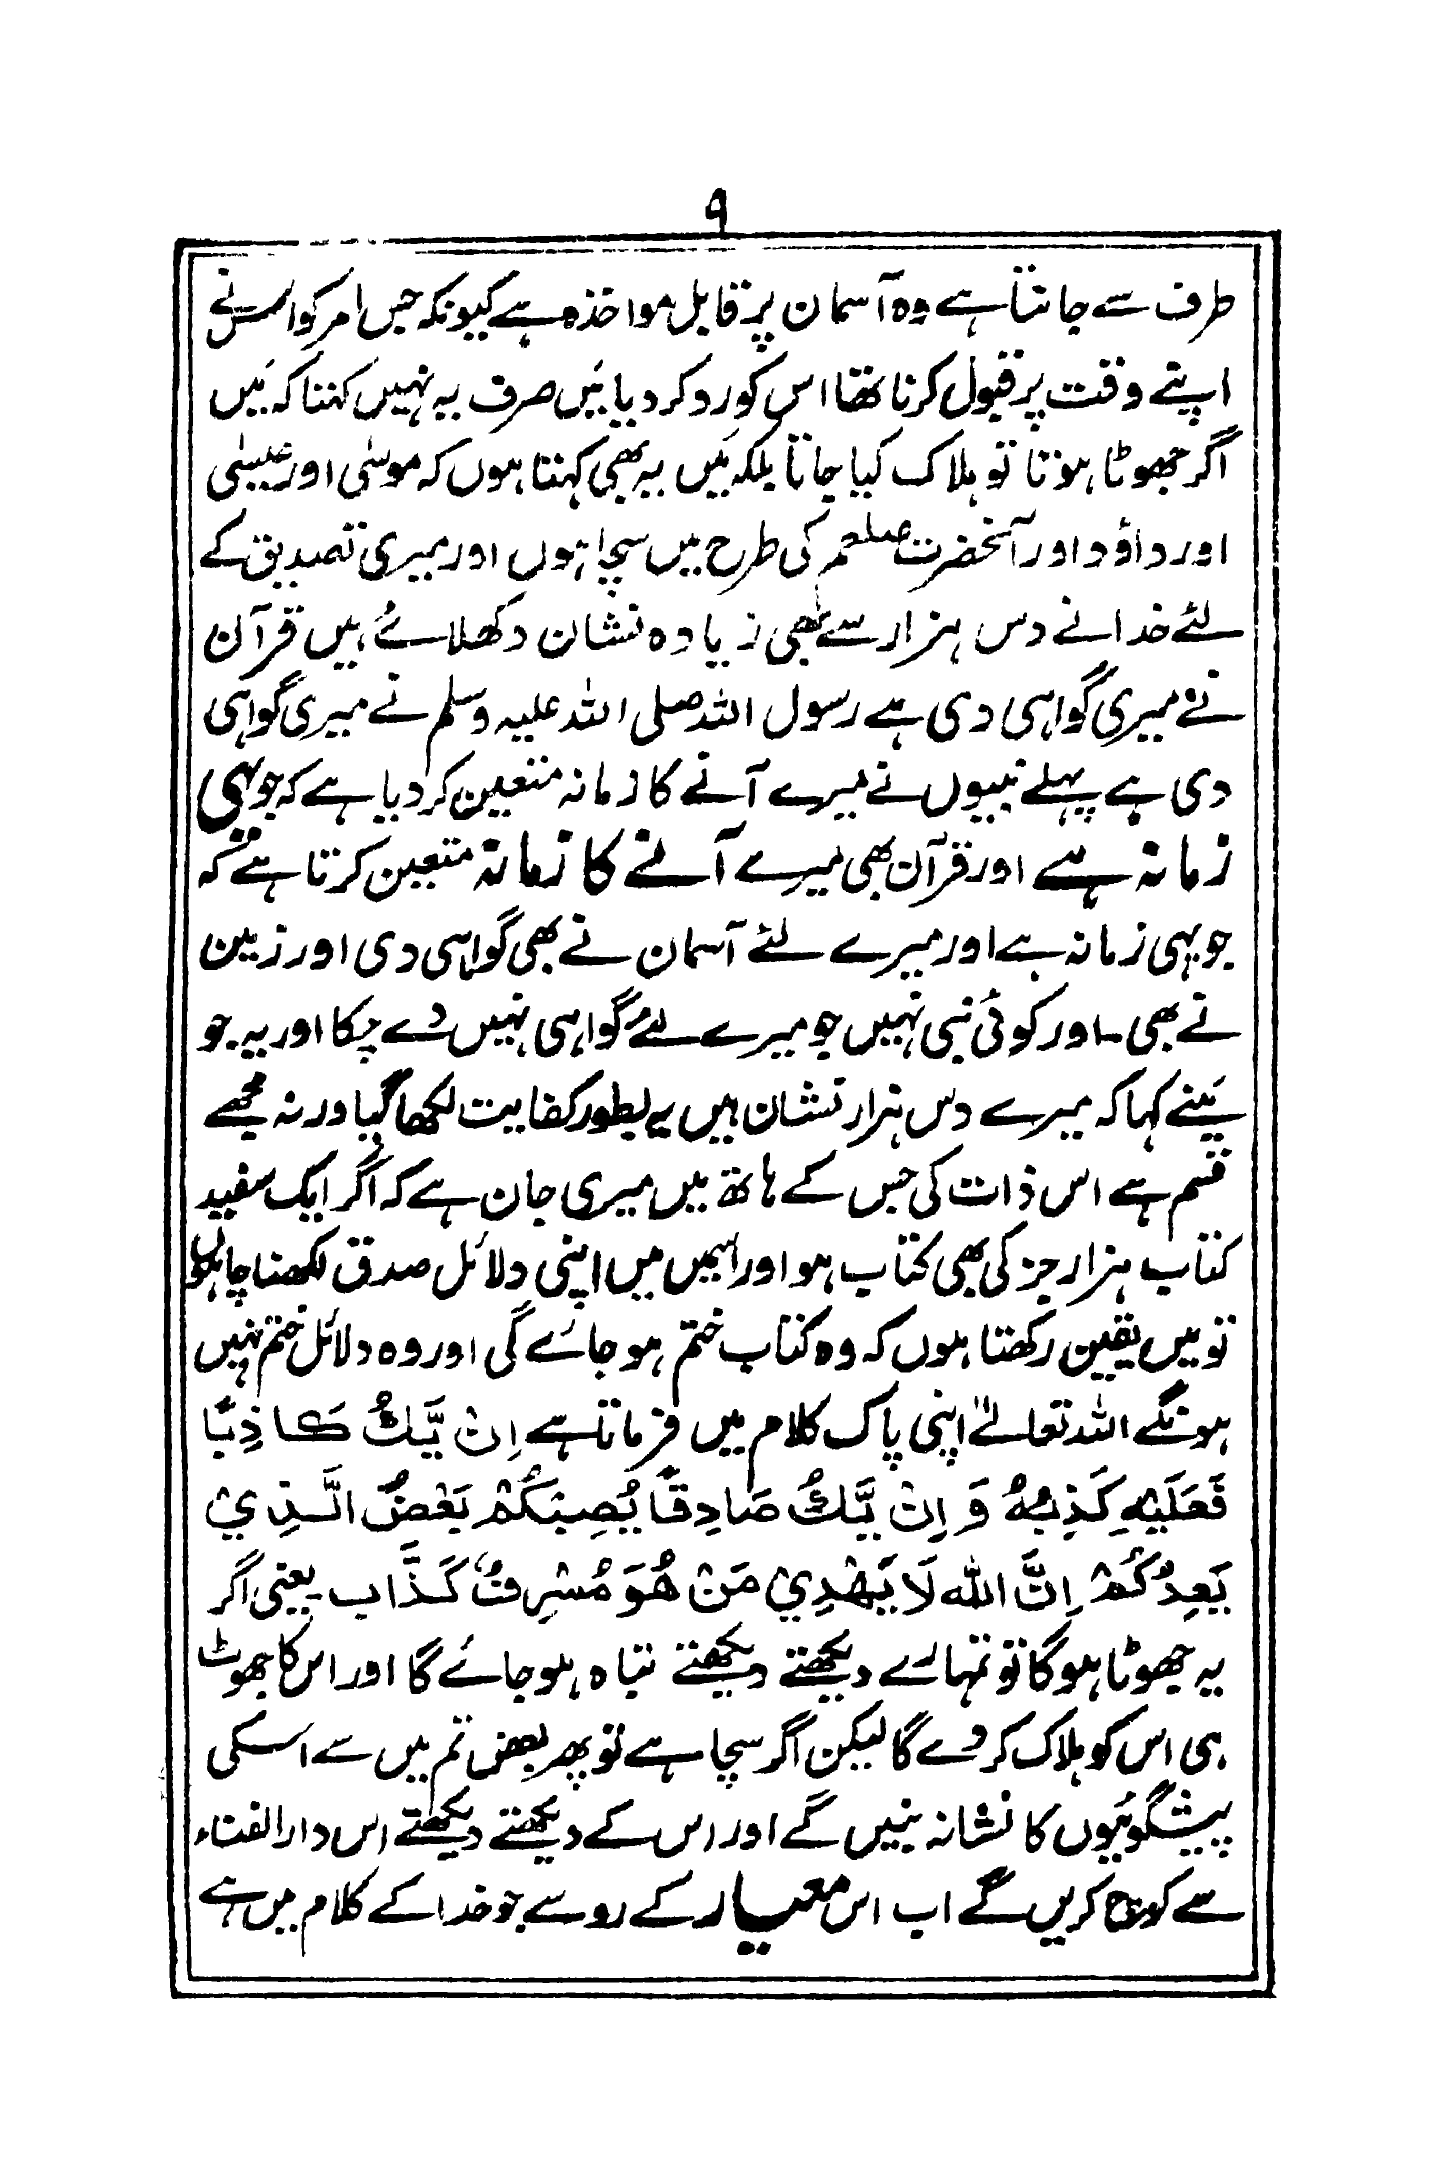 ۹
طرف سے جانتا ہے وہ آسمان پر قابل مواخذہ ہے کیونکہ جس امر کو اس نے
اپنے وقت پر قبول کرنا تھا اس کو رد کر دیا مَیں صرف یہ نہیں کہتا کہ مَیں
اگر جھوٹا ہوتا تو ہلاک کیا جاتا بلکہ مَیں یہ بھی کہتا ہوں کہ موسٰی اور عیسٰی
اور داؤد اور آنحضرت صلعم کی طرح میں سچا ہوں اور میری تصدیق کے
لئے خدا نے دس ہزار سے بھی زیادہ نشان دکھلائے ہیں قرآن
نے میری گواہی دی ہے رسول اللہ صلی اللہ علیہ وسلم نے میری گواہی
دی ہے پہلے نبیوں نے میرے آنے کا زمانہ متعین کر دیا ہے کہ جو یہی
زمانہ ہے اور قرآن بھی میرے آنے کا زمانہ متعین کرتا ہے کہ
جو یہی زمانہ ہے اور میرے لئے آسمان نے بھی گواہی دی اور زمین
نے بھی ۔ اور کوئی نبی نہیں جو میرے لئے گواہی نہیں دے چکا اور یہ جو
مَینے کہا کہ میرے دس ہزار نشان ہیں یہ بطور کفایت لکھا گیا ورنہ مجھے
قسم ہے اس ذات کی جس کے ہاتھ میں میری جان ہے کہ اگر ایک سفید
کتاب ہزار جز کی بھی کتاب ہو اور اسمیں میں اپنی دلائل صدق لکھنا چاہوں
تو میں یقین رکھتا ہوں کہ وہ کتاب ختم ہو جائے گی اور وہ دلائل ختم نہیں
ہونگے اللہ تعالےٰ اپنی پاک کلام میں فرماتا ہے اِنْ یَّكُ كَاذِبًا
فَعَلَيْهِ كَذِبُهُ وَ اِنْ یَّكُ صَادِقًا يُصِبْكُمْ بَعْضُ الَّذِيْ
يَعِدُكُمْ اِنَّ اللّٰه لَا يَهْدِيْ مَنْ هُوَ مُسْرِفٌ كَذَّاب یعنی اگر
یہ جھوٹا ہوگا تو تمہارے دیکھتے دیکھتے تباہ ہو جائے گا اور اس کا جھوٹ
ہی اس کو ہلاک کر دے گا لیکن اگر سچا ہے تو پھر بعض تم میں سے اسکی
پیشگوئیوں کا نشانہ بنیں گے اور اس کے دیکھتے دیکھتے اس دارالفناء
سے کوچ کریں گے اب اس معیار کے رو سے جو خدا کے کلام میں ہے